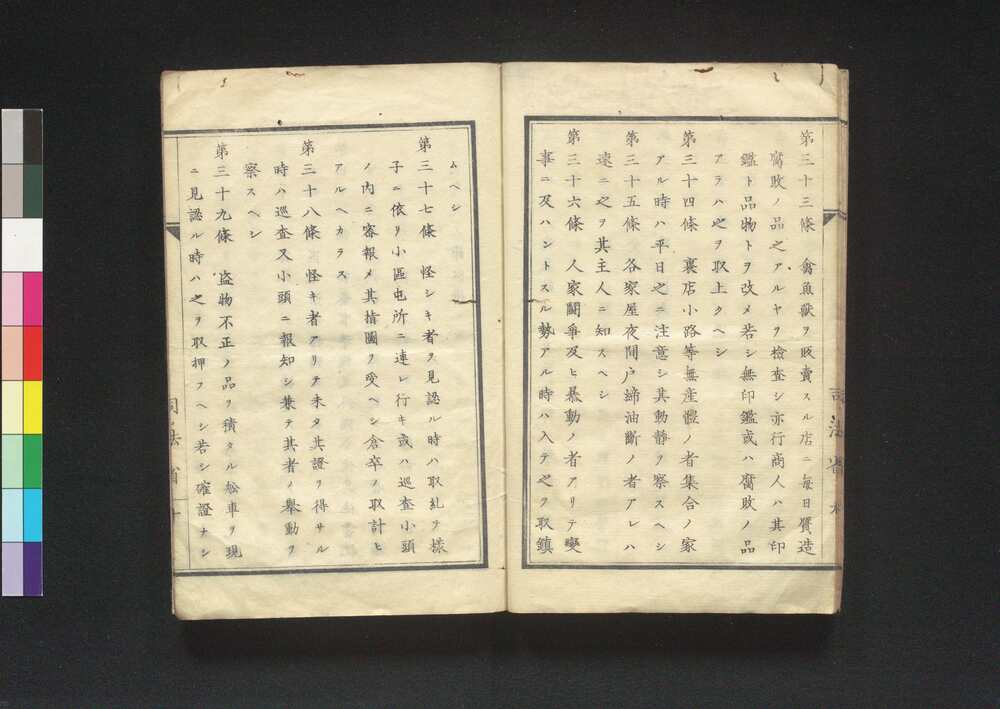 第三十三條　禽魚獸ヲ販賣スル店ニ每日贋造
腐敗ノ品之アルヤヲ檢查シ亦行商人ハ其印
鑑ト品物トヲ改メ若シ無印鑑或ハ腐敗ノ品
アラハ之ヲ取上クヘシ
第三十四條　裏店小路等無產體ノ者集合ノ家
アル時ハ平日之ニ注意シ其動靜ヲ察スヘシ
第三十五條　各家屋夜間戶締油斷ノ者アレハ
速ニ之ヲ其主人ニ知スヘシ
第三十六條　人家鬪爭及ヒ暴動ノ者アリテ變
事ニ及ハントスル勢アル時ハ入テ之ヲ取鎮
司法省
ムヘシ
第三十七條　怪シキ者ヲ見認ル時ハ取糺ヲ樣
子ニ依リ小區屯所ニ連レ行キ或ハ巡查小頭
ノ內ニ審報メ其指圖ヲ受ヘシ倉卒ノ取計ヒ
アルヘカラス
第三十八條　怪キ者アリテ未タ其證ヲ得サル
時ハ巡查又小頭ニ報知シ兼テ其者ノ舉動ヲ
察スヘシ
第三十九條　盜物不正ノ品ヲ積タル舩車ヲ現
ニ見認ル時ハ之ヲ取押フヘシ若シ確證ナシ
司法省